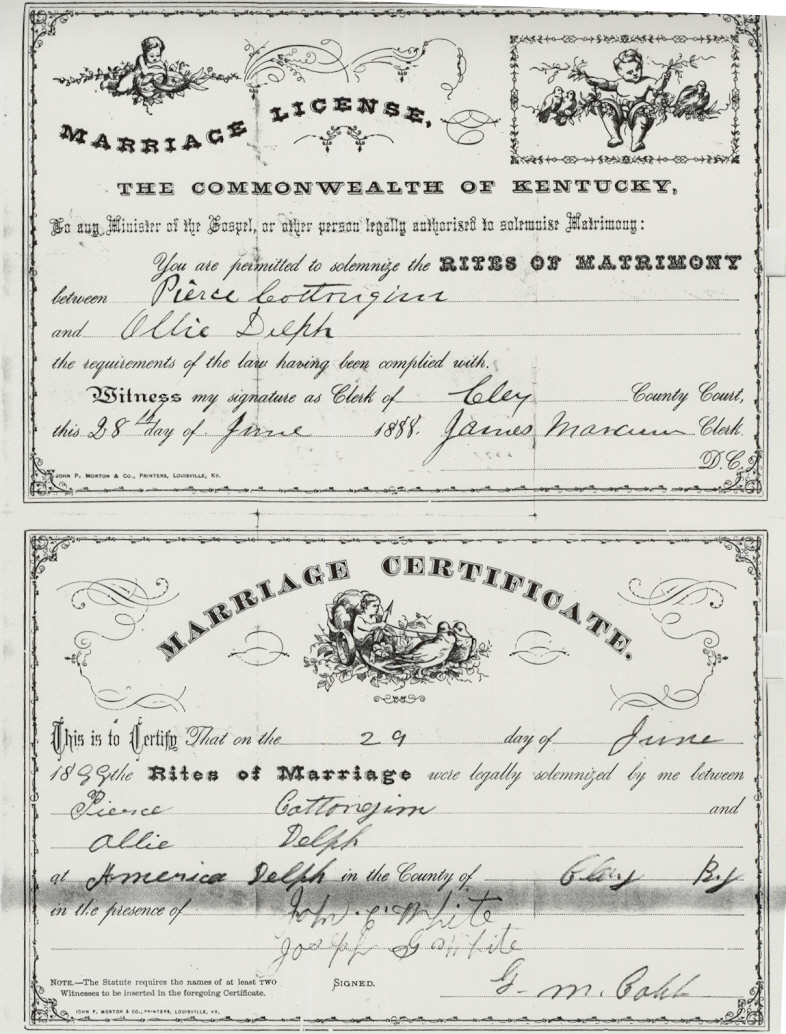 MARRIAGE LICENSE,
THE COMMONWEALTH OF KENTUCKY,
To any Minister of the Gospel, or other person legally authorised to solemnise Matrimony:
You are permitted to solemnize the RITES OF MATRIMONY
between Pierce Cottongim
and Ollie Delph
the requirements of the law having been complied with.
Witness my signature as Clerk of Clay County Court,
this 28th day of June 1888. James Marcum Clerk.
D.C.
JOHN P. MORTON & CO., PRINTERS, LOUISVILLE, KY.
MARRIAGE CERTIFICATE.
This is to Certify That on the 29 day of June
18 the Rites of Marriage were legally solemnized by me between
Pierce Cottongim and
Ollie Delph
at America Delph in the County of Clay
in the presence of John White
Joseph G White
NOTE.—The Statute requires the names of at least TWO
Witnesses to be inserted in the foregoing Certificate.
SIGNED.
G. M. Cobb
JOHN P. MORTON & CO., PRINTERS, LOUISVILLE, KY.